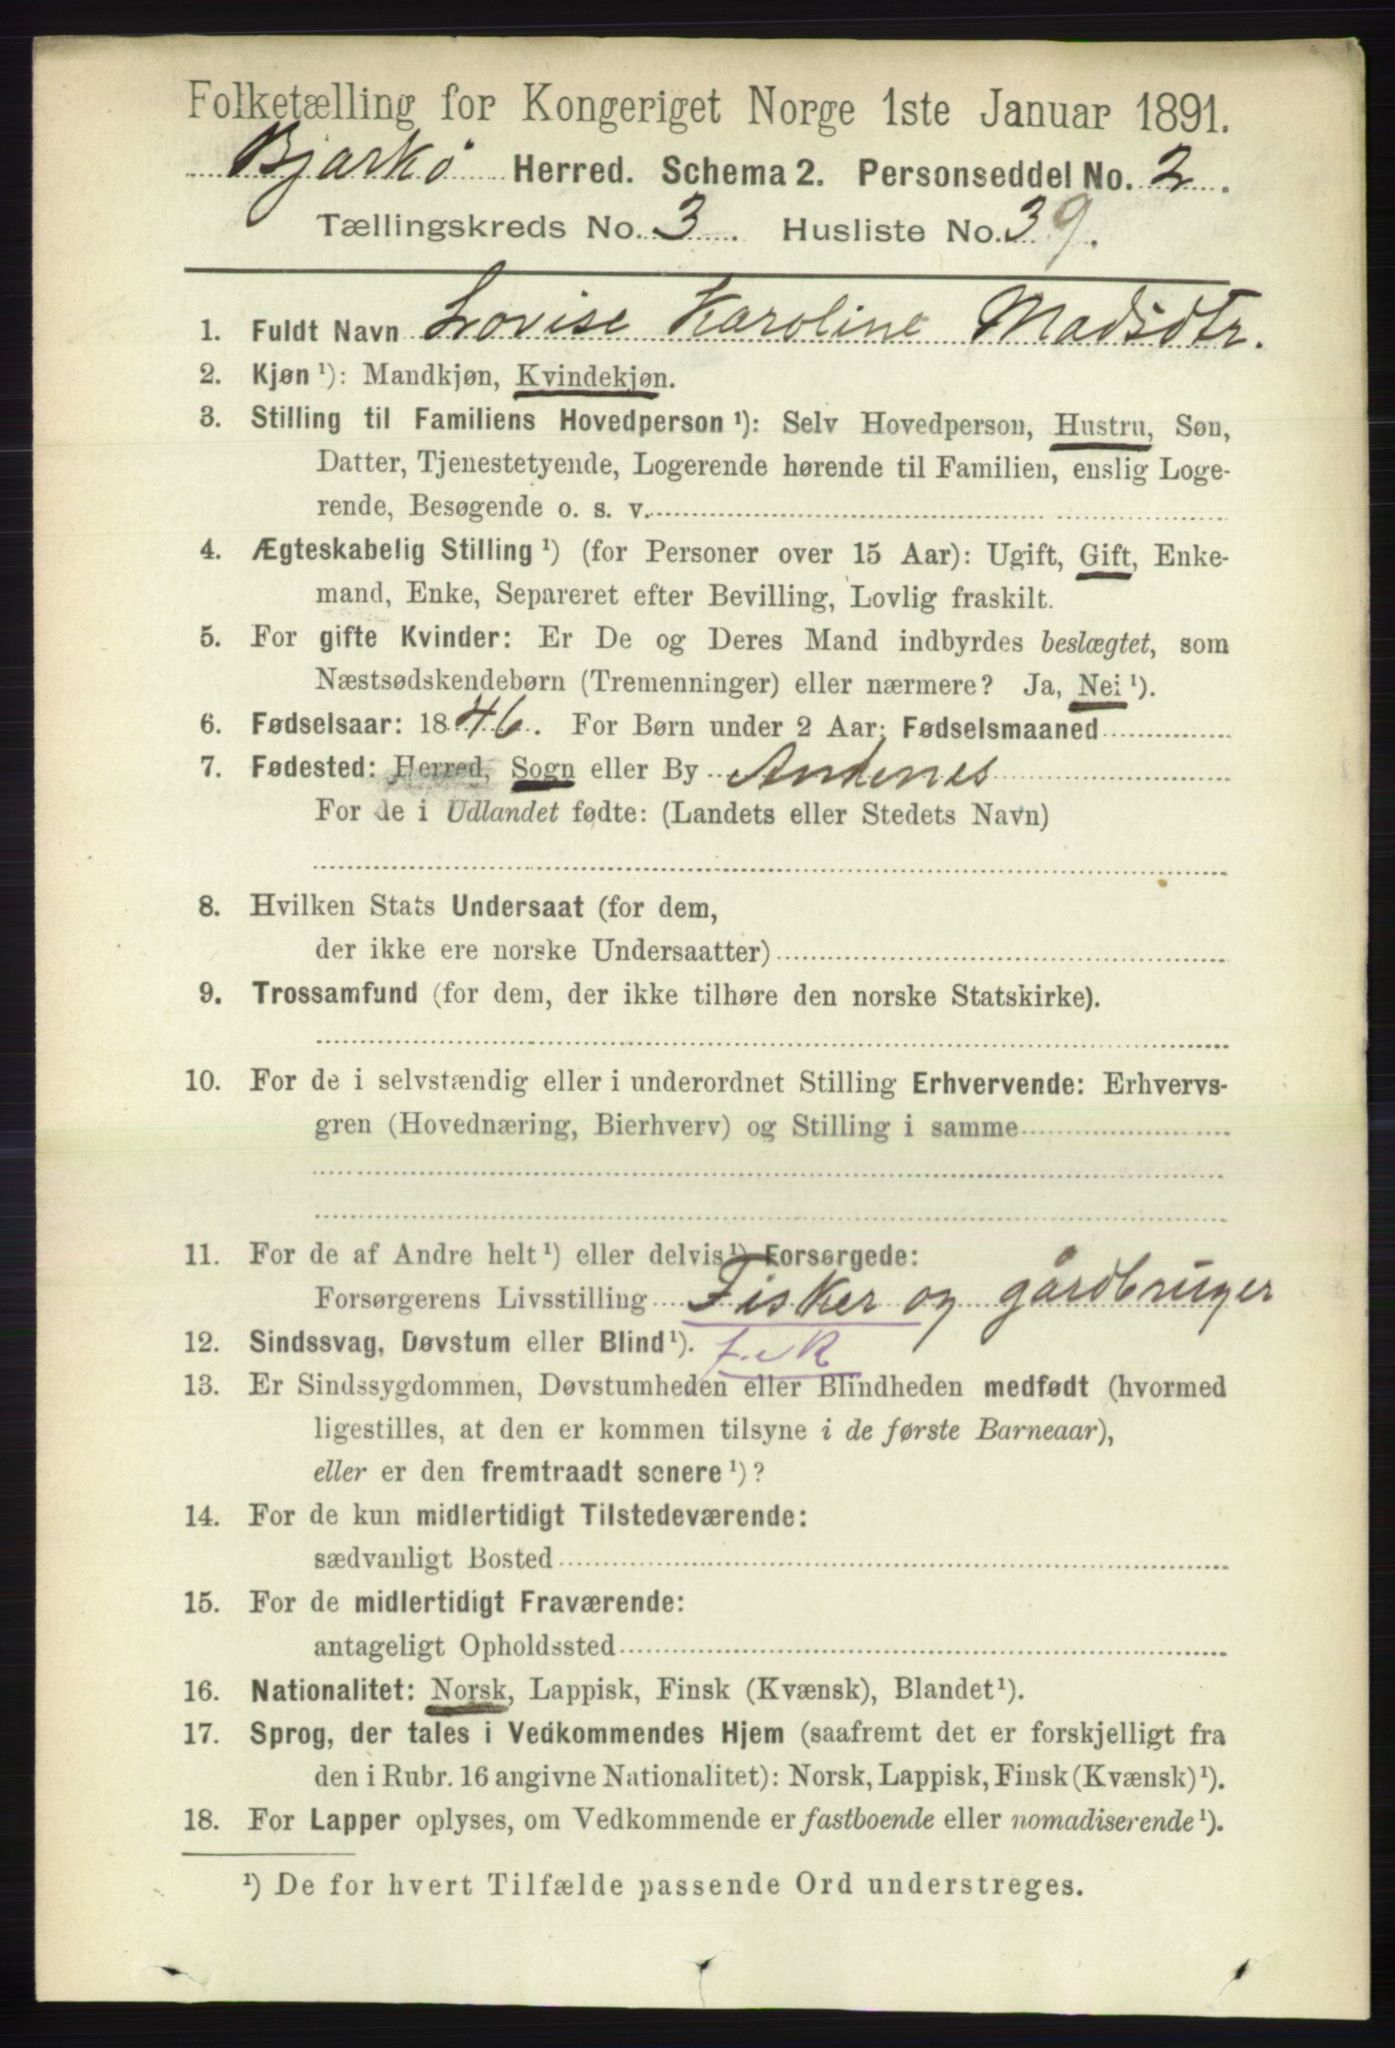 Folketælling for Kongeriget Norge 1ste Januar 1891.
Bjarkø Herred. Schema 2. Personseddel No. 2.
Tællingskreds No. 3. Husliste No. 39.
1. Fuldt Navn Lovise Karoline Madsdtr.
2. Kjøn ¹): Mandkjøn, Kvindekjøn.
3. Stilling til Familiens Hovedperson ¹): Selv Hovedperson, Hustru, Søn,
Datter, Tjenestetyende, Logerende hørende til Familien, enslig Loge-
rende, Besøgende o. s. v.
4. Ægteskabelig Stilling ¹) (for Personer over 15 Aar): Ugift, Gift, Enke-
mand, Enke, Separeret efter Bevilling, Lovlig fraskilt.
5. For gifte Kvinder: Er De og Deres Mand indbyrdes beslægtet, som
Næstsødskendebørn (Tremenninger) eller nærmere? Ja, Nei ¹).
6. Fødselsaar: 1846. For Børn under 2 Aar: Fødselsmaaned
7. Fødested: Herred, Sogn eller By Andenes
For de i Udlandet fødte: (Landets eller Stedets Navn)
8. Hvilken Stats Undersaat (for dem,
der ikke ere norske Undersaatter)
9. Trossamfund (for dem, der ikke tilhøre den norske Statskirke).
10. For de i selvstændig eller i underordnet Stilling Erhvervende: Erhvervs-
gren (Hovednæring, Bierhverv) og Stilling i samme
11. For de af Andre helt ¹) eller delvis ¹) Forsørgede:
Forsørgerens Livsstilling Fisker og gårdbruger
12. Sindssvag, Døvstum eller Blind ¹).
13. Er Sindssygdommen, Døvstumheden eller Blindheden medfødt (hvormed
ligestilles, at den er kommen tilsyne i de første Barneaar),
eller er den fremtraadt senere ¹)?
14. For de kun midlertidigt Tilstedeværende:
sædvanligt Bosted
15. For de midlertidigt Fraværende:
antageligt Opholdssted
16. Nationalitet: Norsk, Lappisk, Finsk (Kvænsk), Blandet ¹).
17. Sprog, der tales i Vedkommendes Hjem (saafremt det er forskjelligt fra
den i Rubr. 16 angivne Nationalitet): Norsk, Lappisk, Finsk (Kvænsk) ¹).
18. For Lapper oplyses, om Vedkommende er fastboende eller nomadiserende ¹).
¹) De for hvert Tilfælde passende Ord understreges.